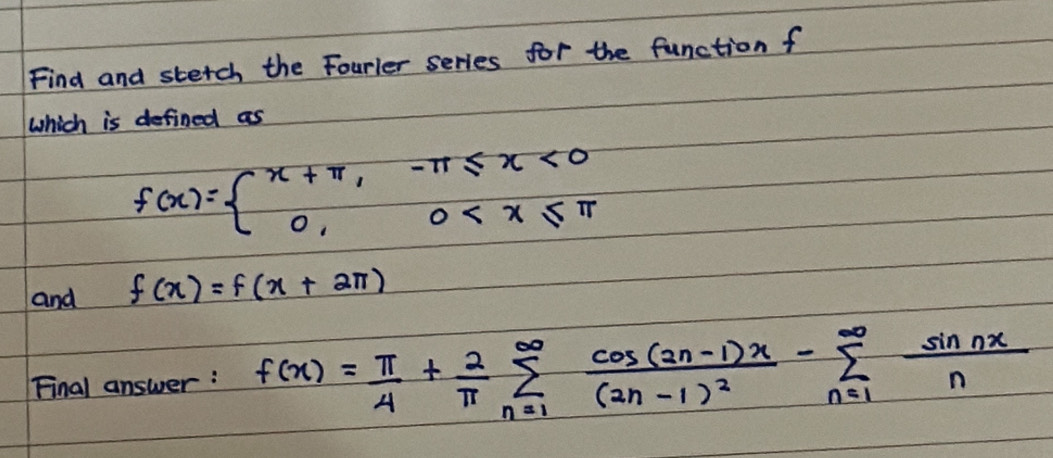 Find and sketch the Fourier series for the function f
which is defined as
f(x)={ x + π, -π ⩽ x < 0
0, 0 < x ⩽ π
and f(x) = f(x + 2π)
Final answer : f(x) = π/4 + 2/π ∞∑n=1 cos(2n-1)x/(2n-1)² - ∞∑n=1 sin nx/n